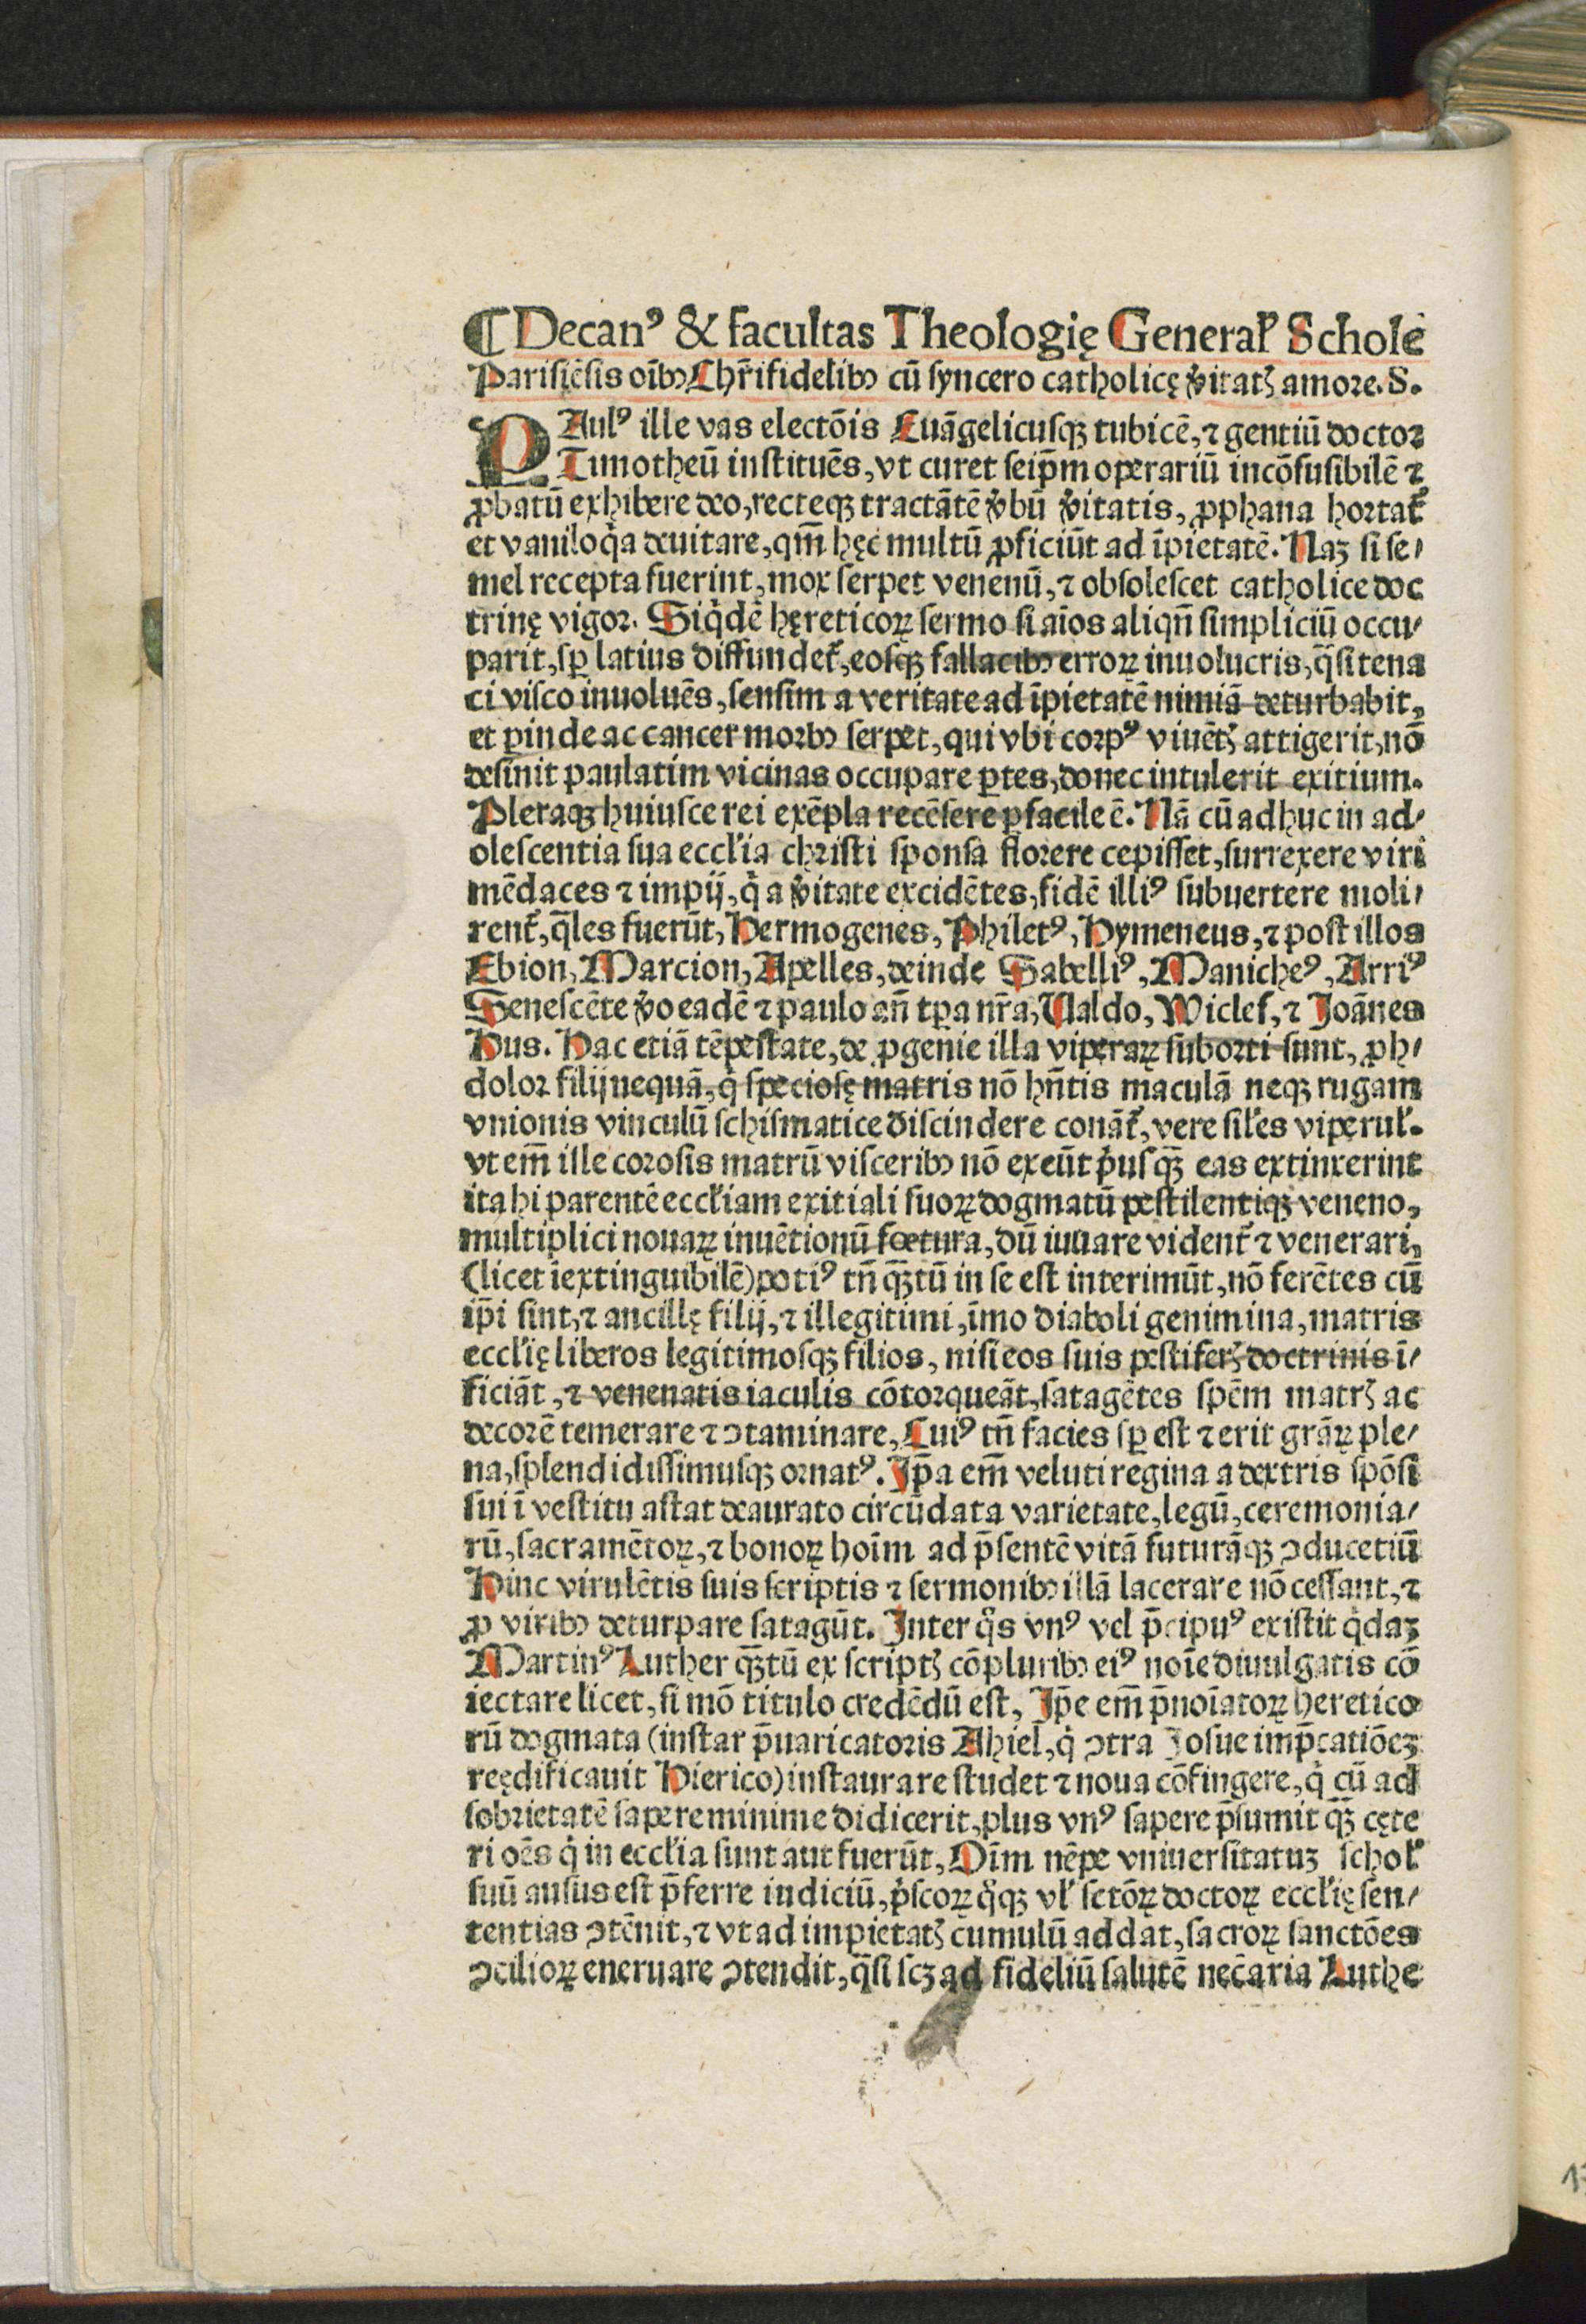 ¶ Decanꝰ & facultas Theologię Generaƚ Scholę
Parisiẽsis oĩbꝫ Chr̃ifidelibꝫ cũ syncero catholicę v̾itatꝭ amore. S.
PAulꝰ ille vas electõis Euãgelicusqꝫ tubicẽ, ⁊ gentiũ doctor
Timotheũ instituẽs, vt curet seip̃m operariũ incõfusibilẽ ⁊
ꝓbatũ exhibere deo, recteqꝫ tractãtẽ v̾bũ v̾itatis, ꝓphana hortat᷑
et vaniloq̃a deuitare, qm̃ hęc multũ ꝓficiũt ad ĩpietatẽ. Naꝫ si se⸗
mel recepta fuerint, mox serpet venenũ, ⁊ obsolescet catholice doc
trinę vigor. Siq̇dẽ hęreticoꝝ sermo si aĩos aliqñ simpliciũ occu⸗
parit, sꝑ latius diffundet᷑, eosqꝫ fallacibꝫ erroꝝ inuolucris, q̃si tena
ci visco inuoluẽs, sensim a veritate ad ĩpietatẽ nimiã deturbabit,
et ꝑinde ac cancer morbꝫ serpet, qui vbi corpꝰ viuẽtꝭ attigerit, nõ
desinit paulatim vicinas occupare ꝑtes, donec intulerit exitium.
Pleraqꝫ huiusce rei exẽpla recẽsere ꝑfacile ẽ. Nã cũ adhuc in ad⸗
olescentia sua eccƚia christi sponsa florere cepisset, surrexere viri
mẽdaces ⁊ impij, q̇ a v̾itate excidẽtes, fidẽ illiꝰ subuertere moli⸗
rent᷑, q̃les fuerũt, Hermogenes, Philetꝰ, Hymeneus, ⁊ post illos
Ebion, Marcion, Apelles, deinde Sabelliꝰ, Manicheꝰ, Arriꝰ
Senescẽte v̾o eadẽ ⁊ paulo añ tꝑa nr̃a, Ualdo, Wiclef, ⁊ Joãnes
Hus. Hac etiã tẽpestate, de ꝓgenie illa viperaꝝ suborti sunt, ꝓh⸗
dolor filij nequã, q̇ speciosę matris nõ hñtis maculã neqꝫ rugam
vnionis vinculũ schismatice discindere conãt᷑, vere siƚes viperuƚ.
vt em̃ ille corosis matrũ visceribꝫ nõ exeũt pͥusqꝫ̃ eas extinxerint
ita hi parentẽ eccƚiam exitiali suoꝝ dogmatũ pestilentiqꝫ veneno,
multiplici nouaꝝ inuẽtionũ fœtura, dũ iuuare vident᷑ ⁊ venerari,
(licet ĩextinguibilẽ) potiꝰ tñ qꝫ̃tũ in se est interimũt, nõ ferẽtes cũ
ip̃i sint, ⁊ ancillę filij, ⁊ illegitimi, ĩmo diaboli genimina, matris
eccƚię liberos legitimosqꝫ filios, nisi eos suis pestiferꝭ doctrinis ĩ⸗
ficiãt, ⁊ venenatis iaculis cõtorqueãt, satagẽtes spẽm matrꝭ ac
decorẽ temerare ⁊ ↄtaminare, Cuiꝰ tñ facies sꝑ est ⁊ erit grãꝝ ple⸗
na, splendidissimusqꝫ ornatꝰ. Jp̃a em̃ veluti regina a dextris spõsi
sui ĩ vestitu astat deaurato circũdata varietate, legũ, ceremonia⸗
rũ, sacramẽtoꝝ, ⁊ bonoꝝ hoĩm ad p̃sentẽ vitã futurãqꝫ ↄducẽtiũ
Hinc virulẽtis suis scriptis ⁊ sermonibꝫ illã lacerare nõ cessant, ⁊
ꝓ viribꝫ deturpare satagũt. Inter q̊s vnꝰ vel p̃cipuꝰ existit q̇daꝫ
Martinꝰ Luther qꝫ̃tũ ex scriptꝭ cõpluribꝫ eiꝰ noĩe diuulgatis cõ
iectare licet, si mõ titulo credẽdũ est, Jp̃e em̃ p̃noĩatoꝝ heretico
rũ dogmata (instar p̃uaricatoris Ahiel, q̇ ↄtra Josue imp̃catiõeꝫ
reędificauit Hierico) instaurare studet ⁊ noua cõfingere, q̇ cũ ad
sobrietatẽ sapere minime didicerit, plus vnꝰ sapere p̃sumit qꝫ̃ cęte
ri oẽs q̇ in eccƚia sunt aut fuerũt, Oĩm nẽpe vniuersitatuꝫ schoƚ
suũ ausus est p̃ferre iudiciũ, pͥscoꝝ q̊qꝫ vƚ sctõꝝ doctoꝝ eccƚię sen⸗
tentias ↄtẽnit, ⁊ vt ad impietatꝭ cumulũ addat, sacroꝝ sanctões
ↄcilioꝝ eneruare ↄtendit, q̃si scꝫ ad fideliũ salutẽ nec̃aria Luthe